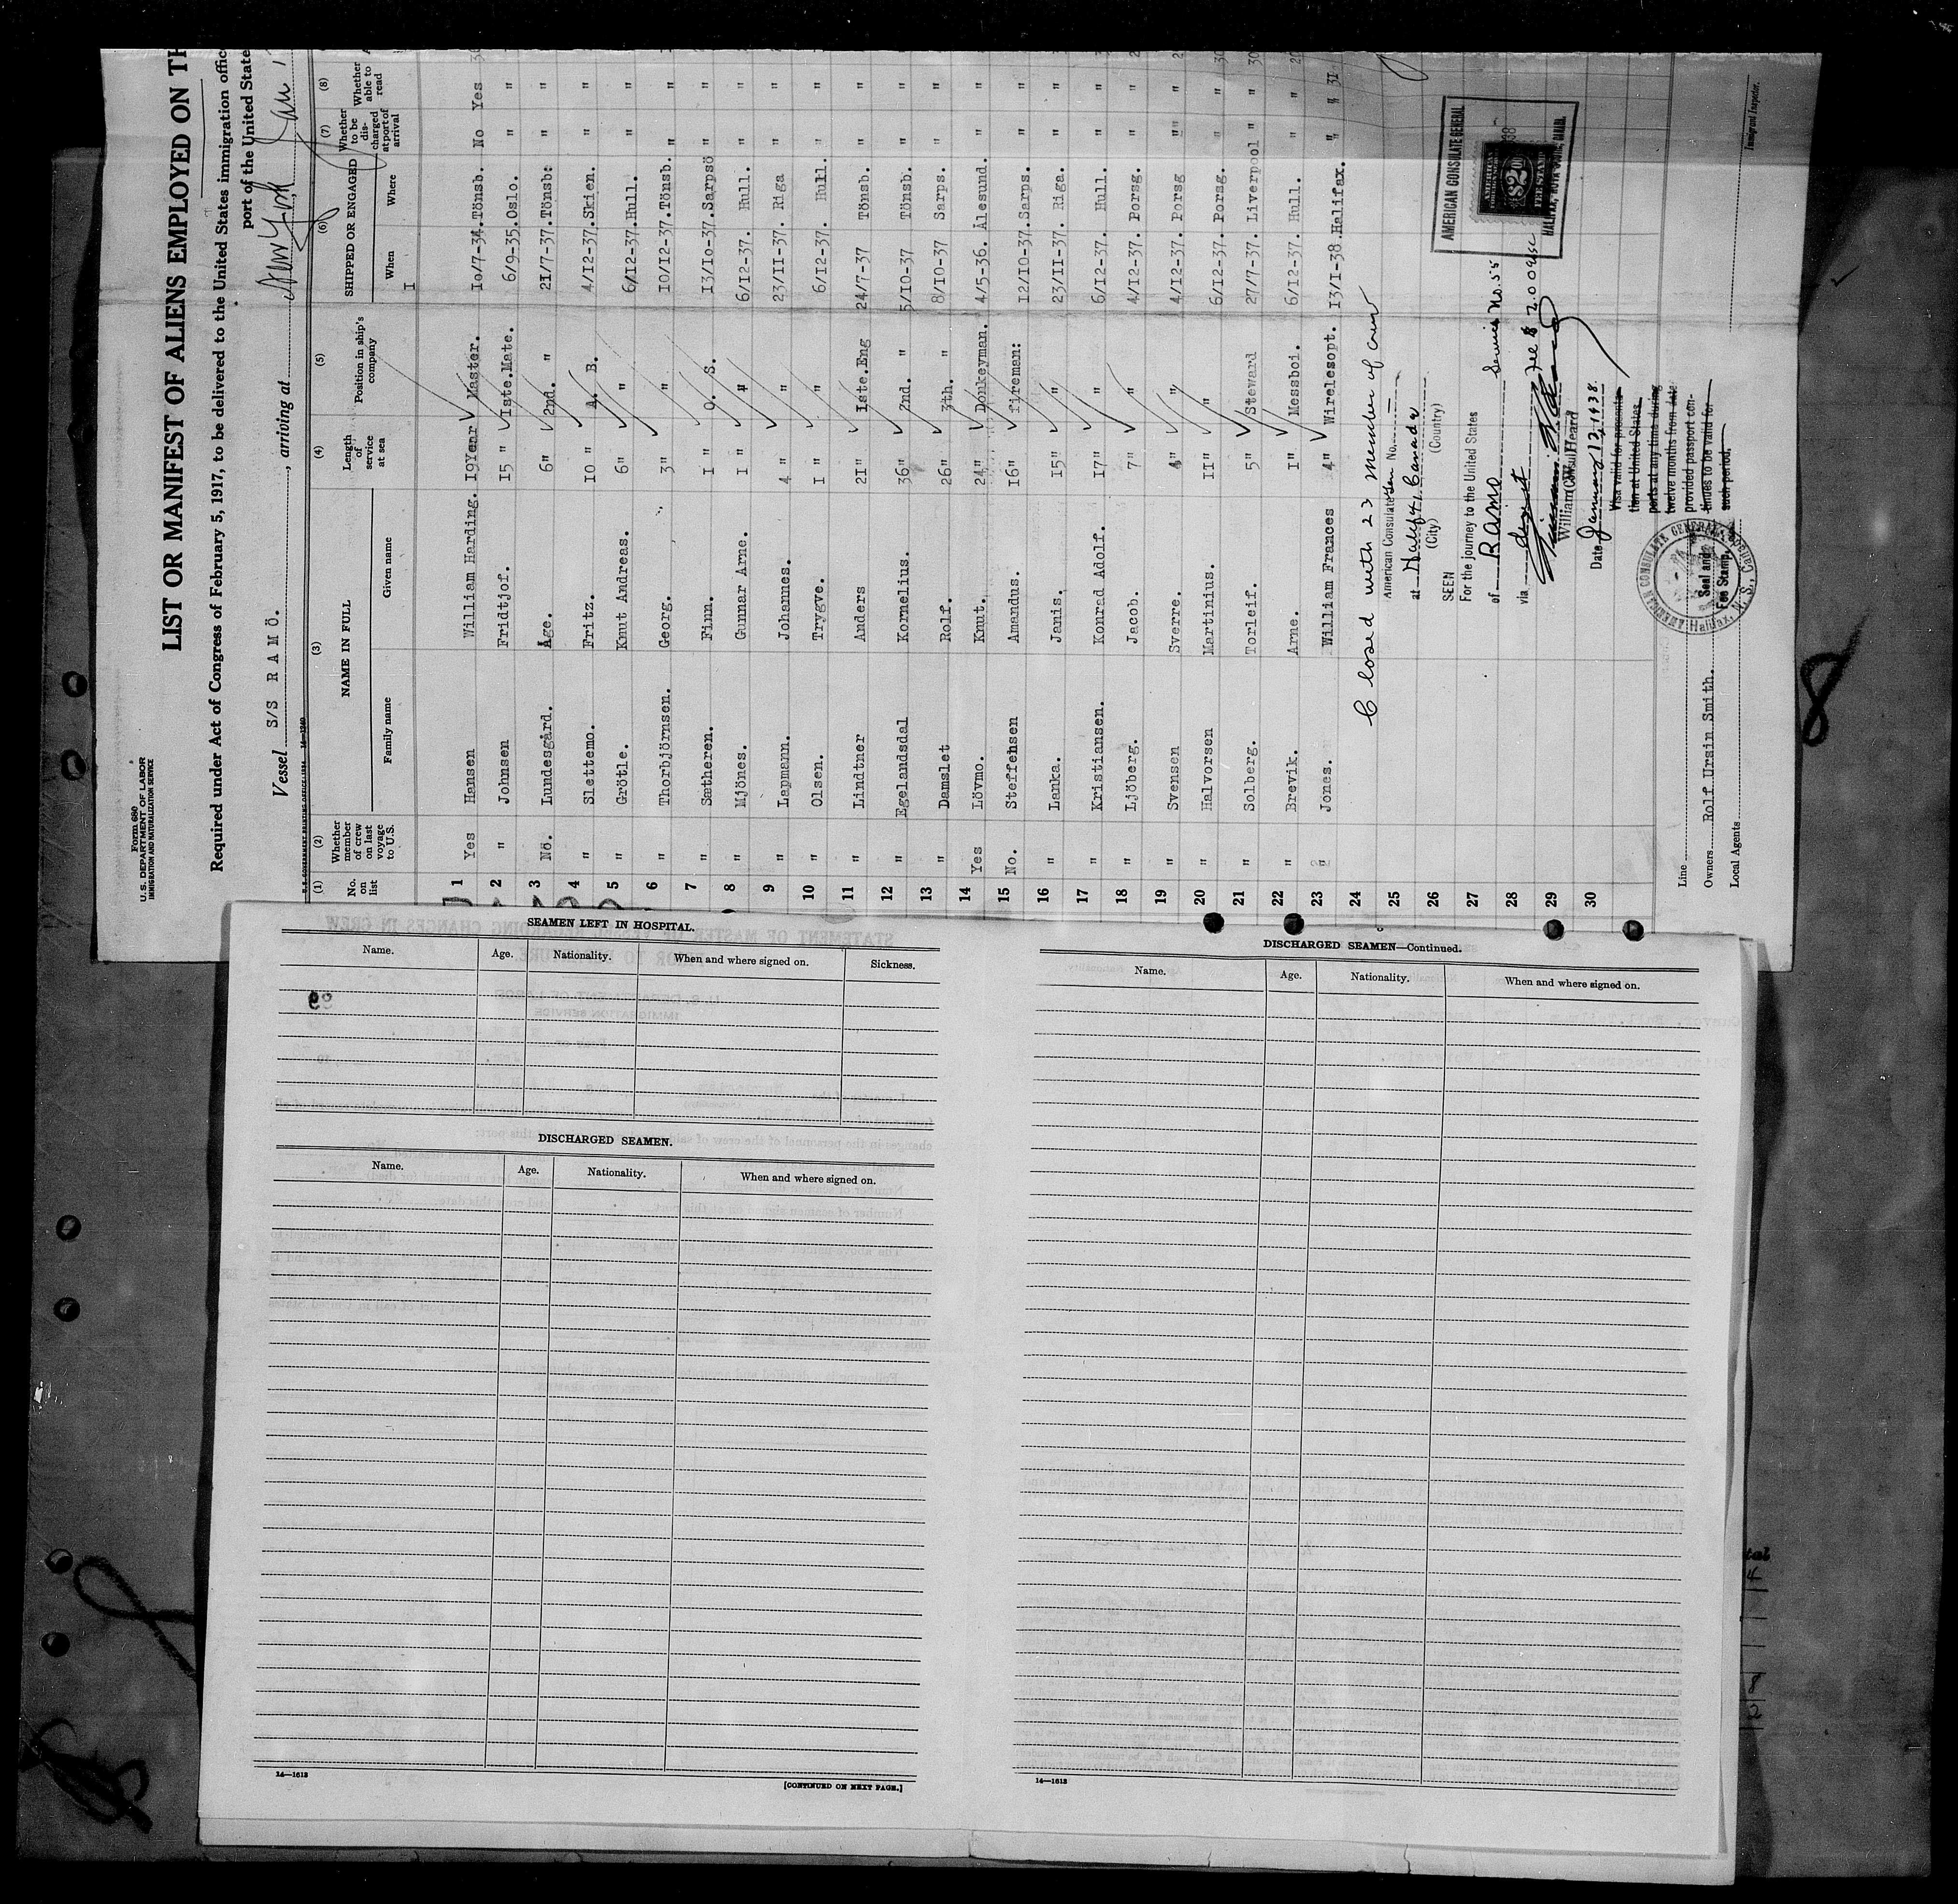 Form 680
U. S. DEPARTMENT OF LABOR
IMMIGRATION AND NATURALIZATION SERVICE
LIST OR MANIFEST OF ALIENS EMPLOYED ON TH
Required under Act of Congress of February 5, 1917, to be delivered to the United States immigration offic
port of the United State
Vessel S/S R A M Ö. , arriving at New York Jan
(1) (2) (3) (4) (5) (6) (7) (8)
No. on list Whether member of crew on last voyage to U.S. NAME IN FULL Length of service at sea Position in ship's company SHIPPED OR ENGAGED Whether to be discharged at port of arrival Whether able to read
Family name Given name When Where
1 Yes Hansen William Harding. I9Year Master. Io/7-34. Tönsb. No Yes
2 " Johnsen Fridtjof. I5 " Iste.Mate. 6/9-35. Oslo. " "
3 No. Lundesgård. Åge. 6" 2nd. " 2I/7-37. Tönsb: " "
4 " Slettemo. Fritz. IO " A. B. 4/I2-37. Skien. " "
5 " Grötle. Knut Andreas. 6" " 6/I2-37. Hull. " "
6 " Thorbjörnsen. Georg. 3" " IO/I2-37. Tönsb. " "
7 " Sætheren. Finn. I " O. S. I3/Io-37. Sarpsö " "
8 " Mjönes. Gunnar Arne. I " " 6/I2-37. Hull. " "
9 " Lapmann. Johannes. 4 " " 23/II-37. Riga " "
10 " Olsen. Trygve. I " " 6/I2-37. Hull. " "
11 " Lindtner Anders 2I" Iste.Eng 24/7-37 Tönsb. " "
12 " Egelandsdal Kornelius. 36" 2nd. " 5/IO-37 Tönsb. " "
13 " Damslet Rolf. 26" 3th. " 8/IO-37 Sarps. " "
14 Yes Lövmo. Knut. 24" Donkeyman. 4/5-36. Ålesund. " "
15 No. Steffensen Amandus. I6" fireman: I2/IO-37. Sarps. " "
16 " Lanka. Janis. I5" " 23/II-37. Riga. " "
17 " Kristiansen. Konrad Adolf. I7" " 6/I2-37. Hull. " "
18 " Ljöberg. Jacob. 7" " 4/I2-37. Porsg. " "
19 " Svensen Sverre. 4" " 4/I2-37. Porsg " "
20 " Halvorsen Martinius. II" " 6/I2-37. Porsg. " "
21 " Solberg. Torleif. 5" Steward 27/7-37. Liverpool " "
22 " Brevik. Arne. I" Messboi. 6/I2-37. Hull. " "
23 " Jones. William Frances 4" Wirelesopt. I3/I-38. Halifax. " " 31
24
25
26
27
28
29
30
Closed with 23 member of crew
American Consulate Gen No.
at Halifax, Canada
(City) (Country)
SEEN
For the journey to the United States Service No. 55
of RAMO
via direct Fee $ 2.00
William C.W. Heard
Date January 13, 1938.
Visa valid for presenta-
tion at United States
ports at any time during
twelve months from date
provided passport con-
tinues to be valid for
such period.
Seal and
Fee Stamp,
AMERICAN CONSULATE GENERAL
Halifax, N. S., Canada
AMERICAN CONSULATE GENERAL
$2.00
HALIFAX, NOVA SCOTIA, CANADA.
Line
Owners Rolf Ursin Smith.
Local Agents
Immigrant Inspector.
SEAMEN LEFT IN HOSPITAL.
Name. Age. Nationality. When and where signed on. Sickness.
DISCHARGED SEAMEN.
Name. Age. Nationality. When and where signed on.
14—1613
[CONTINUED ON NEXT PAGE.]
DISCHARGED SEAMEN—Continued.
Name. Age. Nationality. When and where signed on.
14—1613